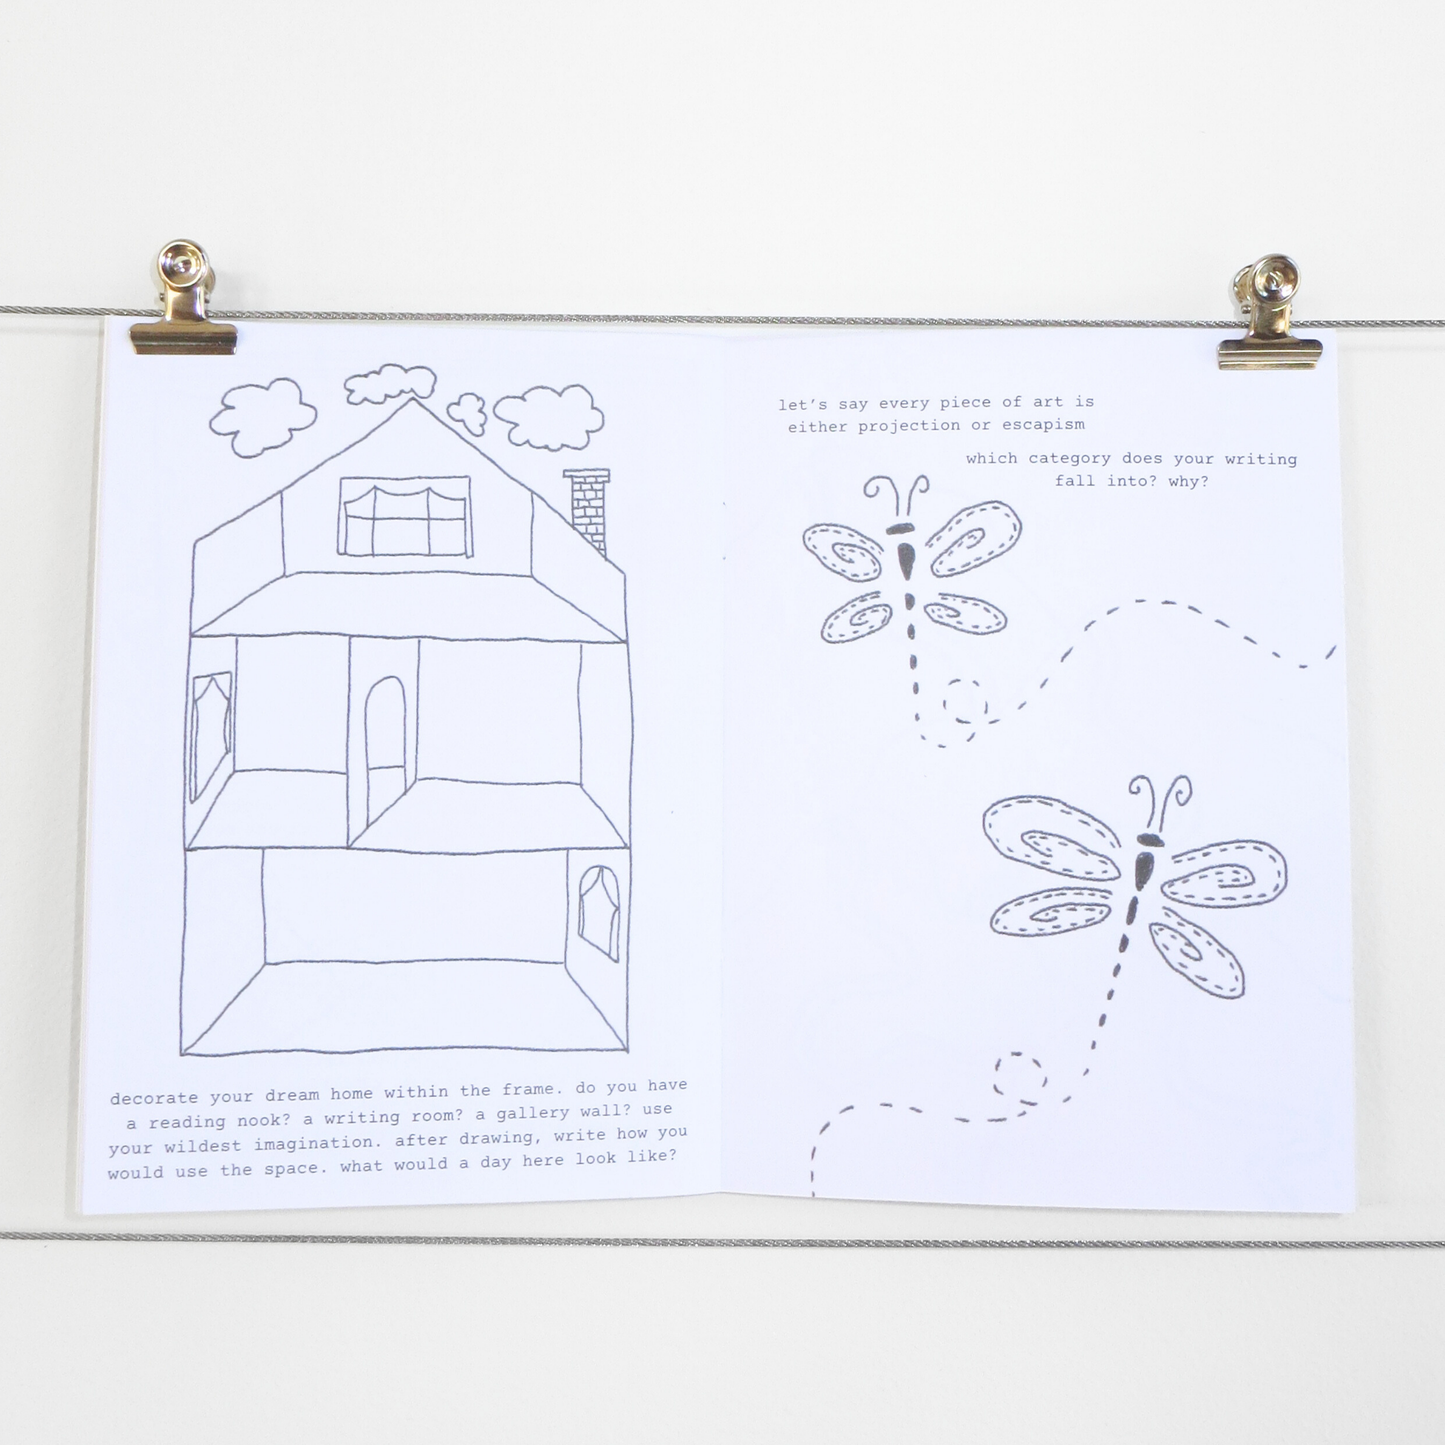 decorate your dream home within the frame. do you have
a reading nook? a writing room? a gallery wall? use
your wildest imagination. after drawing, write how you
would use the space. what would a day here look like?
let's say every piece of art is
either projection or escapism
which category does your writing
fall into? why?